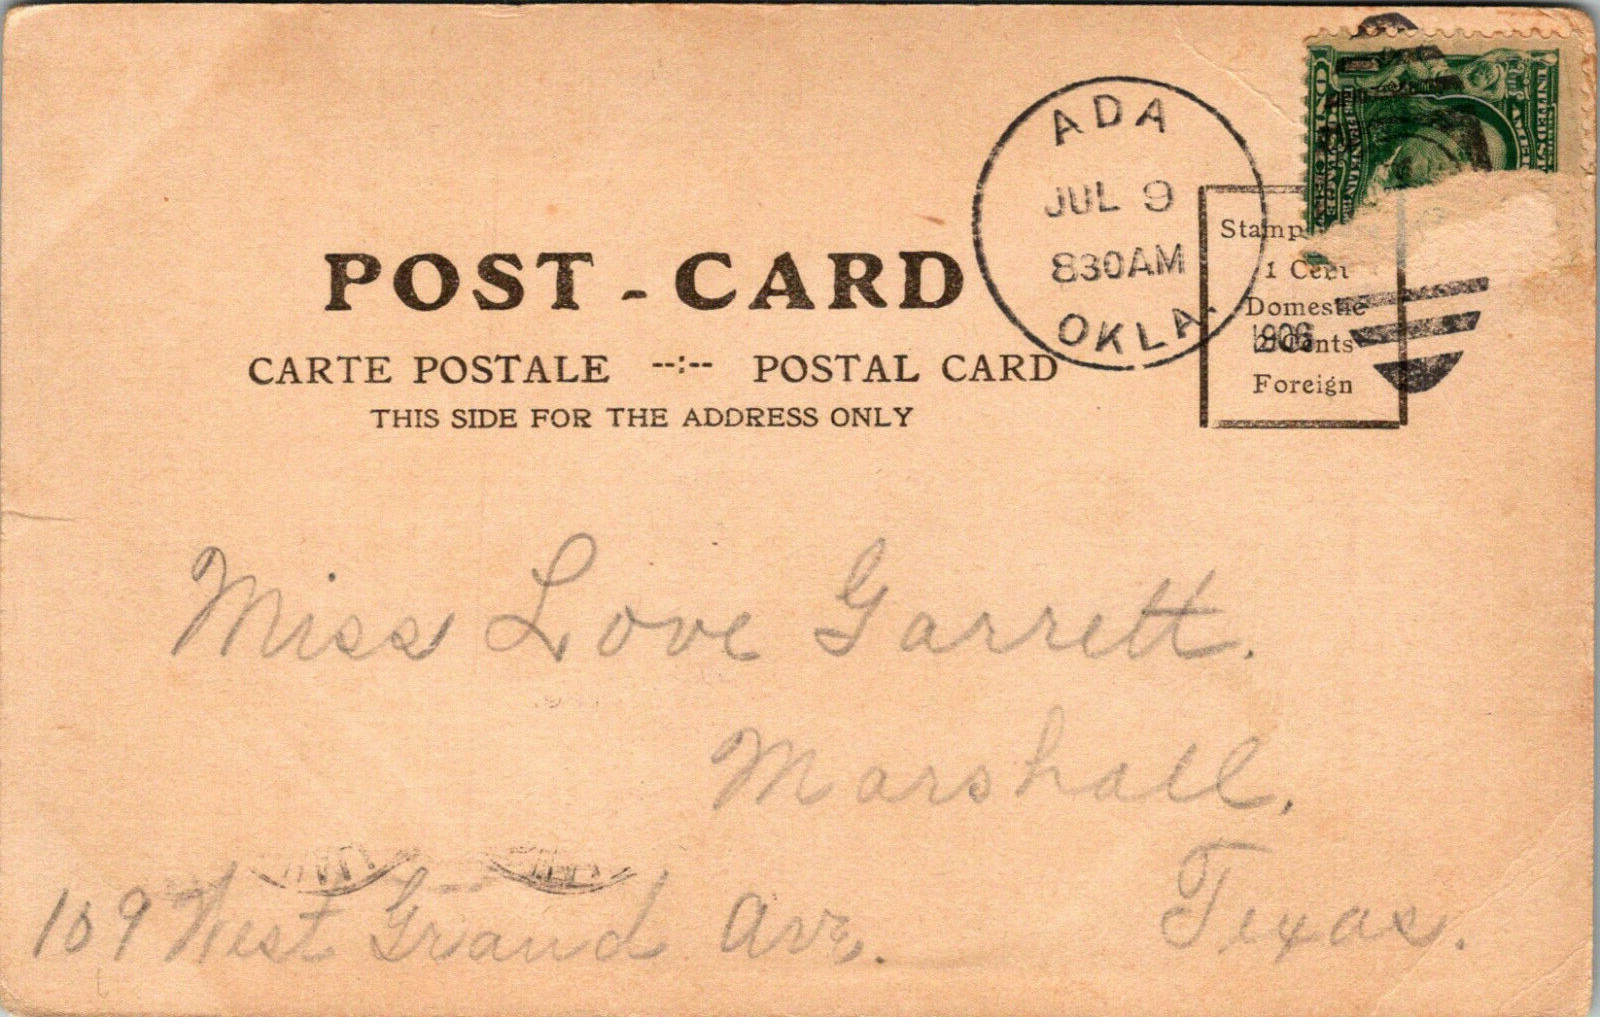 ADA
JUL 9
830AM
OKLA.
1906
POST - CARD
CARTE POSTALE --:-- POSTAL CARD
THIS SIDE FOR THE ADDRESS ONLY
Stamp
1 Cent
Domestic
2 Cents
Foreign
Miss Love Garrett.
Marshall,
Texas.
109 West Grand Ave.